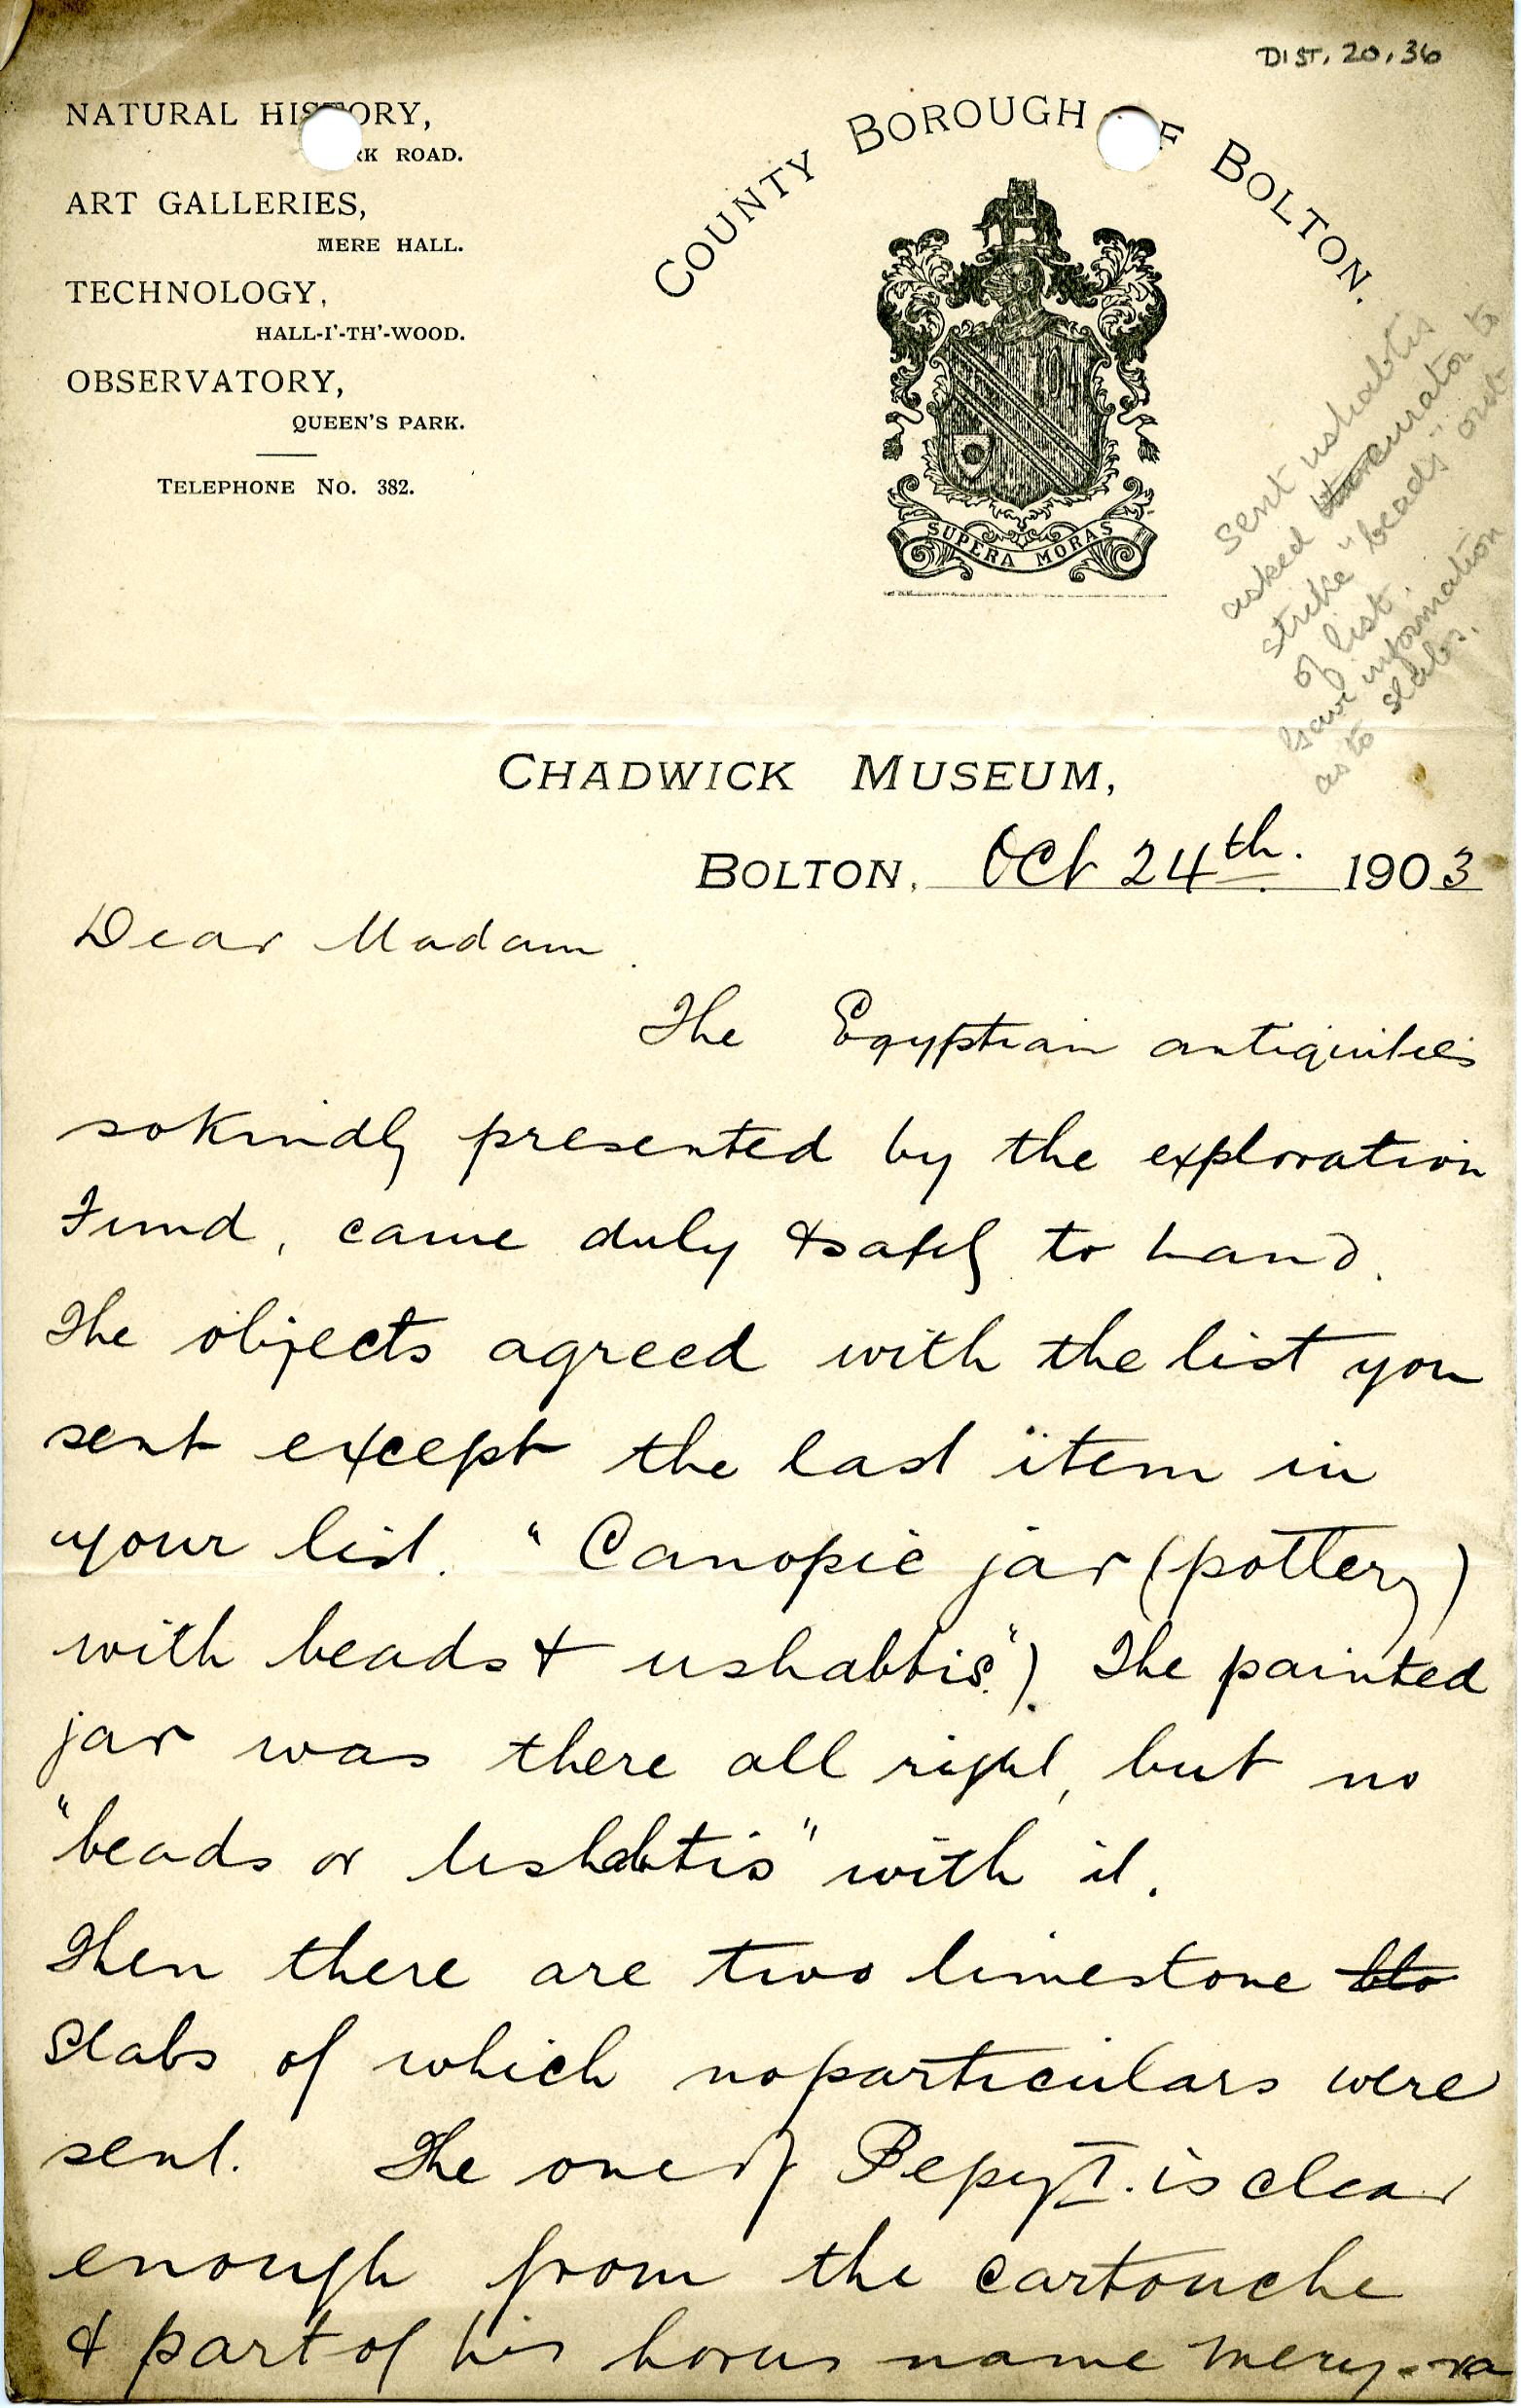 DIST. 20.36
NATURAL HISTORY,
RK ROAD.
ART GALLERIES,
MERE HALL.
TECHNOLOGY,
HALL-I'-TH'-WOOD.
OBSERVATORY,
QUEEN'S PARK.
TELEPHONE NO. 382.
COUNTY BOROUGH OF BOLTON.
SUPERA MORAS
sent ushabtis
asked curator to
strike "beads" out
of list.
Gave information
as to slabs.
CHADWICK MUSEUM,
BOLTON, Oct 24th. 1903
Dear Madam.
The Egyptian antiquities
so kindly presented by the exploration
Fund, came duly & safely to hand.
The objects agreed with the list you
sent except the last item in
your list. "Canopic jar (pottery)
with beads & ushabtis"). The painted
jar was there all right, but no
"beads or Ushabtis" with it.
Then there are two limestone blo
slabs of which no particulars were
sent. The one of Pepy I. is clear
enough from the cartouche
& part of his horus name Mery-ra